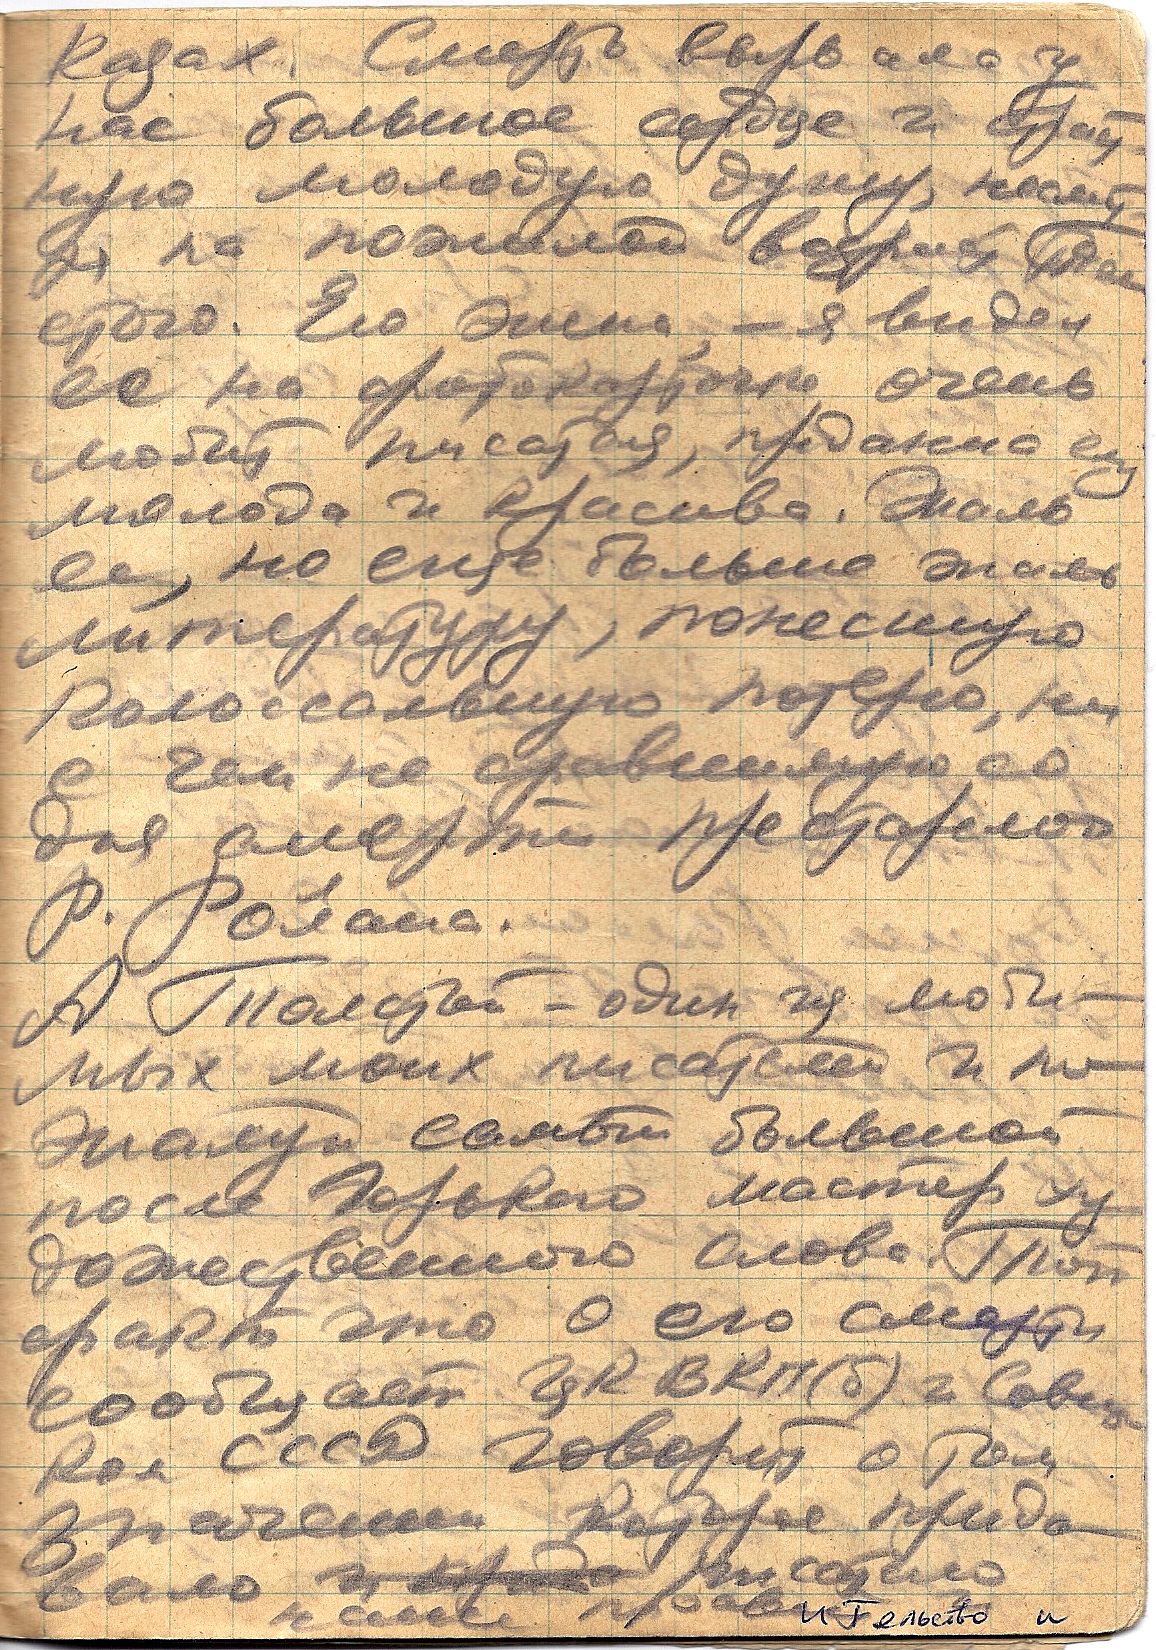 казах. Смерть вырвала у
нас большое сердце и
ную молодую душу,
на пожилой возраст Тол
стого. Его жена, – я видел
ее на фотокарточке, очень
любит писателя, преданна ему
молода и красива. Жаль
ее, но еще больше жаль
литературу, понесшую
колоссальную потерю, ни
с чем не сравнимую со
дня смерти престарелого
Р. Ролана.
А Толстой – один из люби–
мых моих писателей и по–
жалуй самый большой
после Горького мастер ху
дожественного слова. Тот
факт что о его смерти
сообщает ЦК ВКП(б) и Совнар
ком СССР говорит о том
значении которое прида–
вало и писателю
наше прави
ительство и